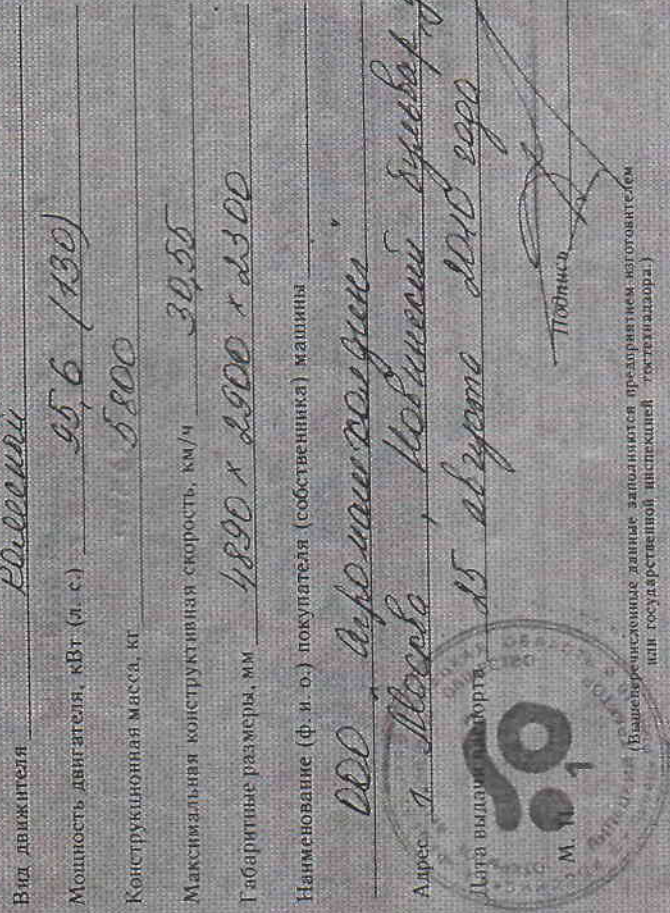 Вид движителя колесный
Мощность двигателя, кВт (л. с.) 95,6 (130)
Конструкционная масса, кг 5800
Максимальная конструктивная скорость, км/ч 30,55
Габаритные размеры, мм 4890 х 2900 х 2300
Наименование (ф. и. о.) покупателя (собственника) машины
ООО "Агромашхолдинг"
Адрес г. Москва, Новинский бульвар
Дата выдачи паспорта 25 августа 2010 года
М. П. Подпись
(Вышеперечисленные данные заполняются предприятием-изготовителем
или государственной инспекцией гостехнадзора.)